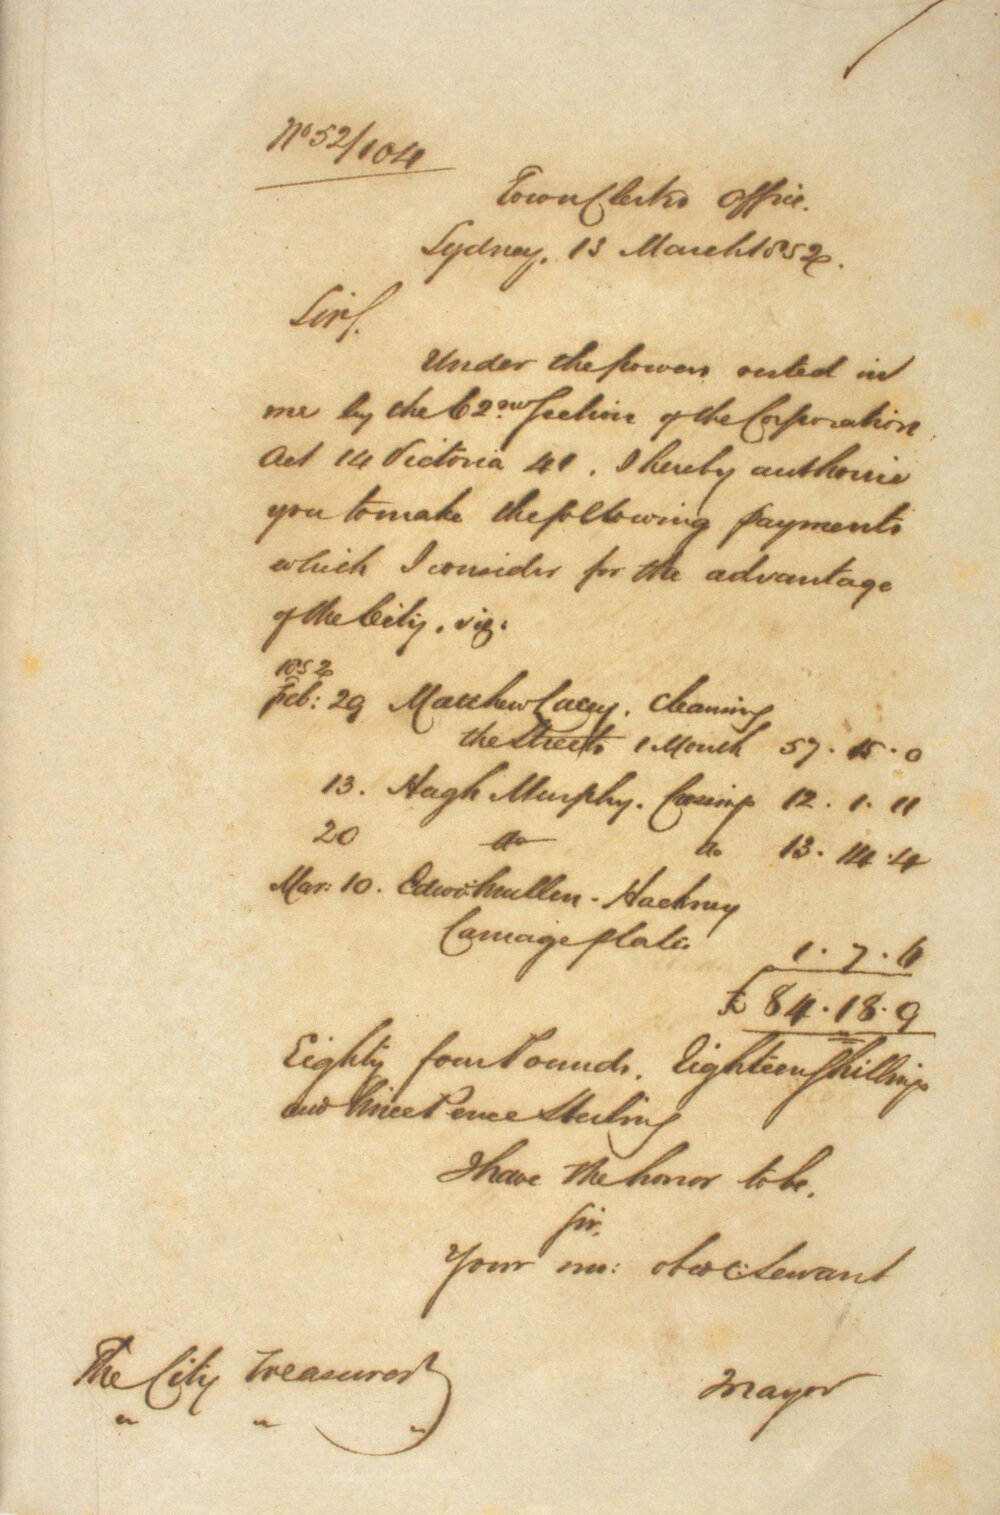 No 52/104
Town Clerks Office.
Sydney, 13 March 1852.
Sir,
Under the powers vested in
me by the 62nd Section of the Corporation
Act 14 Victoria 41. I hereby authorise
you to make the following payments
which I consider for the advantage
of the City, viz.
1852
Feb: 29 Matthew Lacey. Cleaning
the Streets 1 Month 57.15.0
13. Hugh Murphy. 12.1.11
20 do do 13.14.4
Mar: 10. Edwd Mullen - Hackney
Carriage plates 1.7.6
£84.18.9
Eighty four Pounds. Eighteen Shillings
and Nine Pence Sterling
I have the honor to be,
Sir,
Your mo: obedt: Servant
The City Treasurer
" " "
Mayor